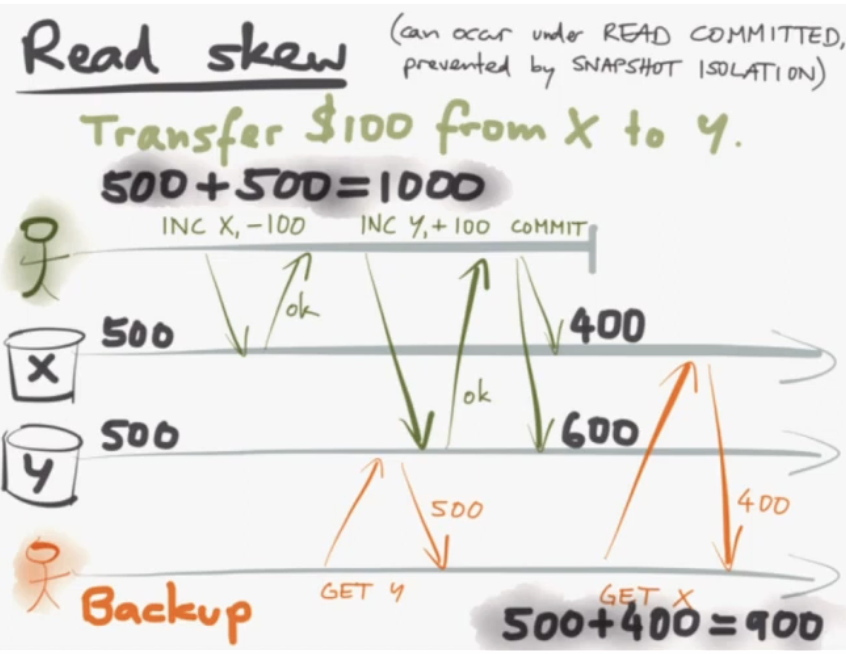 Read skew
(can occur under READ COMMITTED,
prevented by SNAPSHOT ISOLATION)
Transfer $100 from X to Y.
500+500=1000
INC X,-100 INC Y,+100 COMMIT
ok
500 400
X
ok
500 600
Y
500 400
GET Y GET X
Backup
500+400=900